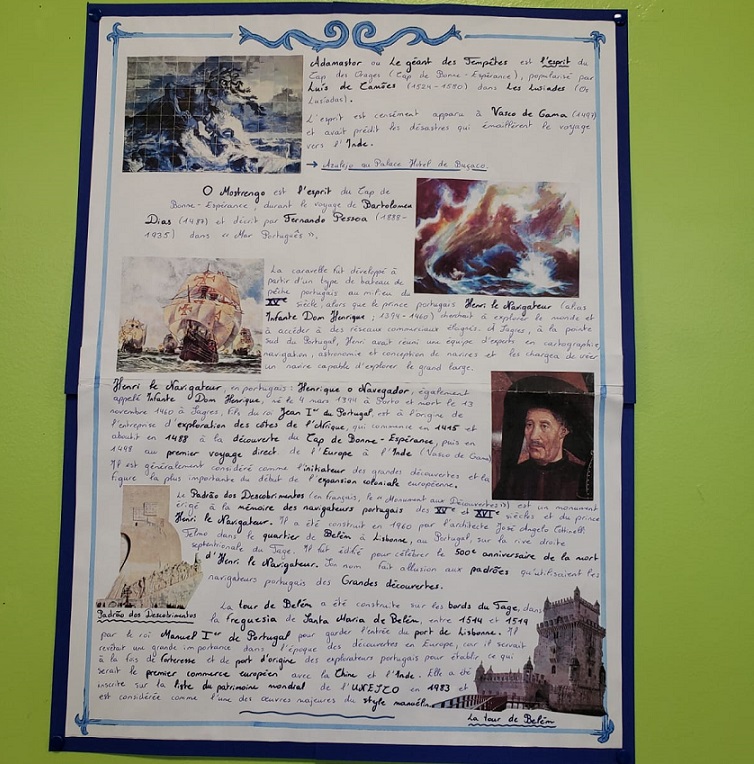 Adamastor ou Le géant des Tempêtes est l'esprit du
Cap des Orages (Cap de Bonne-Espérance), popularisé par
Luís de Camões (1524-1580) dans Les Lusiades (Os
Lusíadas).
L'esprit est censément apparu à Vasco de Gama (1497)
et avait prédit les désastres qui émaillèrent le voyage
vers l'Inde.
→ Azulejo au Palace Hôtel de Buçaco.
O Mostrengo est l'esprit du Cap de
Bonne-Espérance, durant le voyage de Bartolomeu
Dias (1487) et décrit par Fernando Pessoa (1888-
1935) dans « Mar Português ».
La caravelle fut développé à
partir d'un type de bateau de
pêche portugais au milieu du
XVe siècle, alors que le prince portugais Henri le Navigateur (alias
Infante Dom Henrique ; 1394-1460) cherchait à explorer le monde et
à accéder à des réseaux commerciaux éloignés. A Sagres, à la pointe
sud du Portugal, Henri avait réuni une équipe d'experts en cartographie,
navigation, astronomie et conception de navires et les chargea de créer
un navire capable d'explorer le grand large.
Henri le Navigateur, en portugais : Henrique o Navegador, également
appelé Infante Dom Henrique, né le 4 mars 1394 à Porto et mort le 13
novembre 1460 à Sagres, fils du roi Jean Ier du Portugal, est à l'origine de
l'entreprise d'exploration des côtes de l'Afrique, qui commence en 1415 et
aboutit en 1488 à la découverte du Cap de Bonne-Espérance, puis en
1498 au premier voyage direct de l'Europe à l'Inde (Vasco de Gama)
Il est généralement considéré comme l'initiateur des grandes découvertes et la
figure la plus importante du début de l'expansion coloniale européenne.
Le Padrão dos Descobrimentos (en français, le « Monument aux Découvertes ») est un monument
érigé à la mémoire des navigateurs portugais des XVe et XVIe siècles et du prince
Henri le Navigateur. Il a été construit en 1960 par l'architecte José Angelo Cottinelli
Telmo dans le quartier de Belém à Lisbonne, au Portugal, sur la rive droite
septentionale du Tage. Il fut édifié pour célébrer le 500e anniversaire de la mort
d'Henri le Navigateur. Son nom fait allusion aux padrões qu'utilisaient les
navigateurs portugais des Grandes découvertes.
Padrão dos Descobrimentos
La tour de Belém a été construite sur les bords du Tage, dans
la freguesia de Santa Maria de Belém, entre 1514 et 1519
par le roi Manuel Ier de Portugal pour garder l'entrée du port de Lisbonne. Il
revêtait une grande importance dans l'époque des découvertes en Europe, car il servait
à la fois de forteresse et de port d'origine des explorateurs portugais pour établir ce qui
serait le premier commerce européen avec la Chine et l'Inde. Elle a été
inscrite sur la liste du patrimoine mondial de l'UNESCO en 1983 et
est considérée comme l'une des œuvres majeures du style manuélin.
La tour de Belém